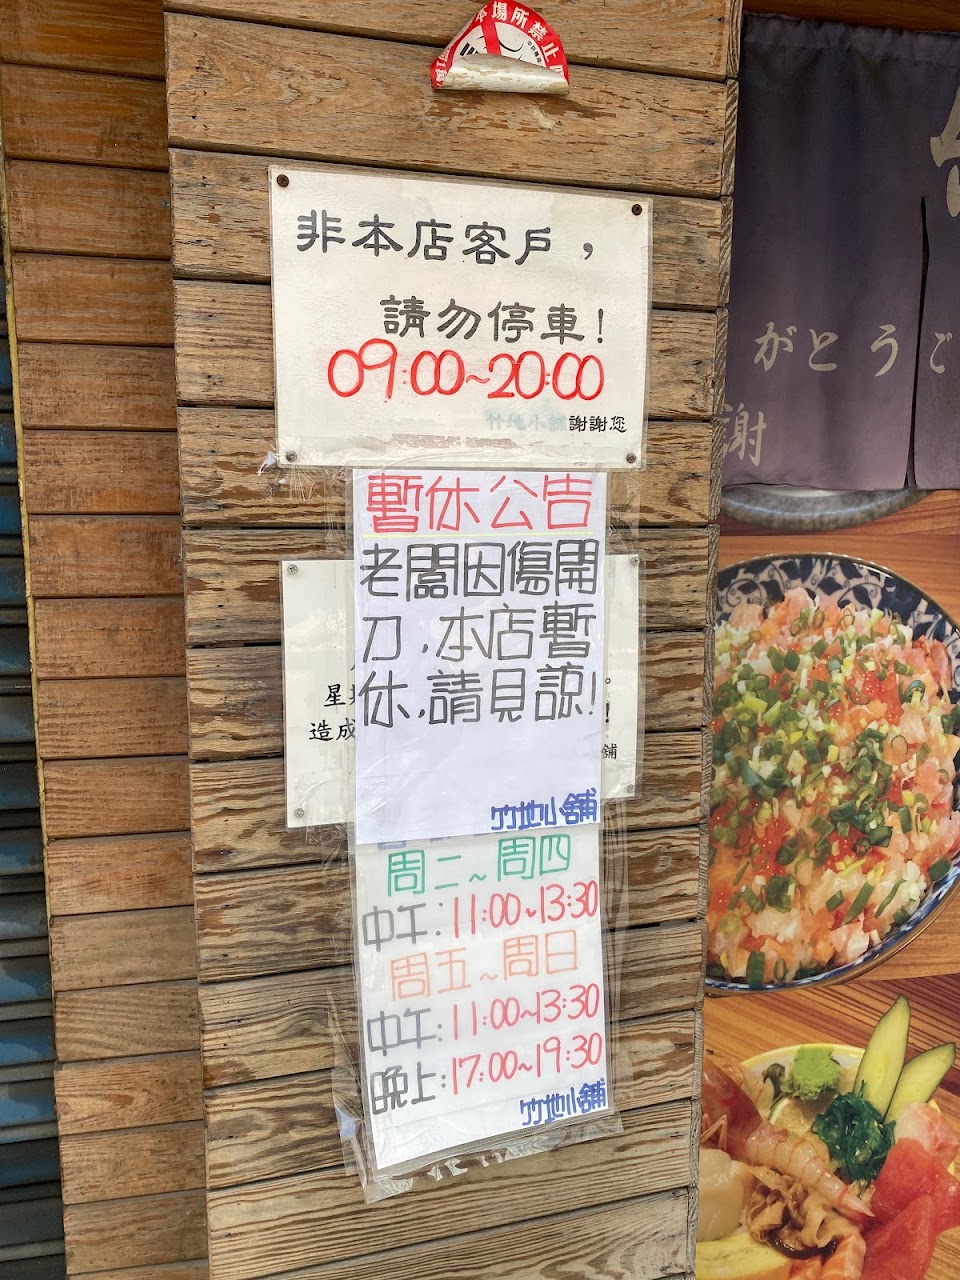 本場所禁止
非本店客戶，
請勿停車！
09:00~20:00
竹地小舖謝謝您
暫休公告
老闆因傷開
刀，本店暫
休，請見諒！
星
造成
舖
竹地小舖
周二~周四
中午：11:00~13:30
周五~周日
中午：11:00~13:30
晚上：17:00~19:30
竹地小舖
がとうご
謝